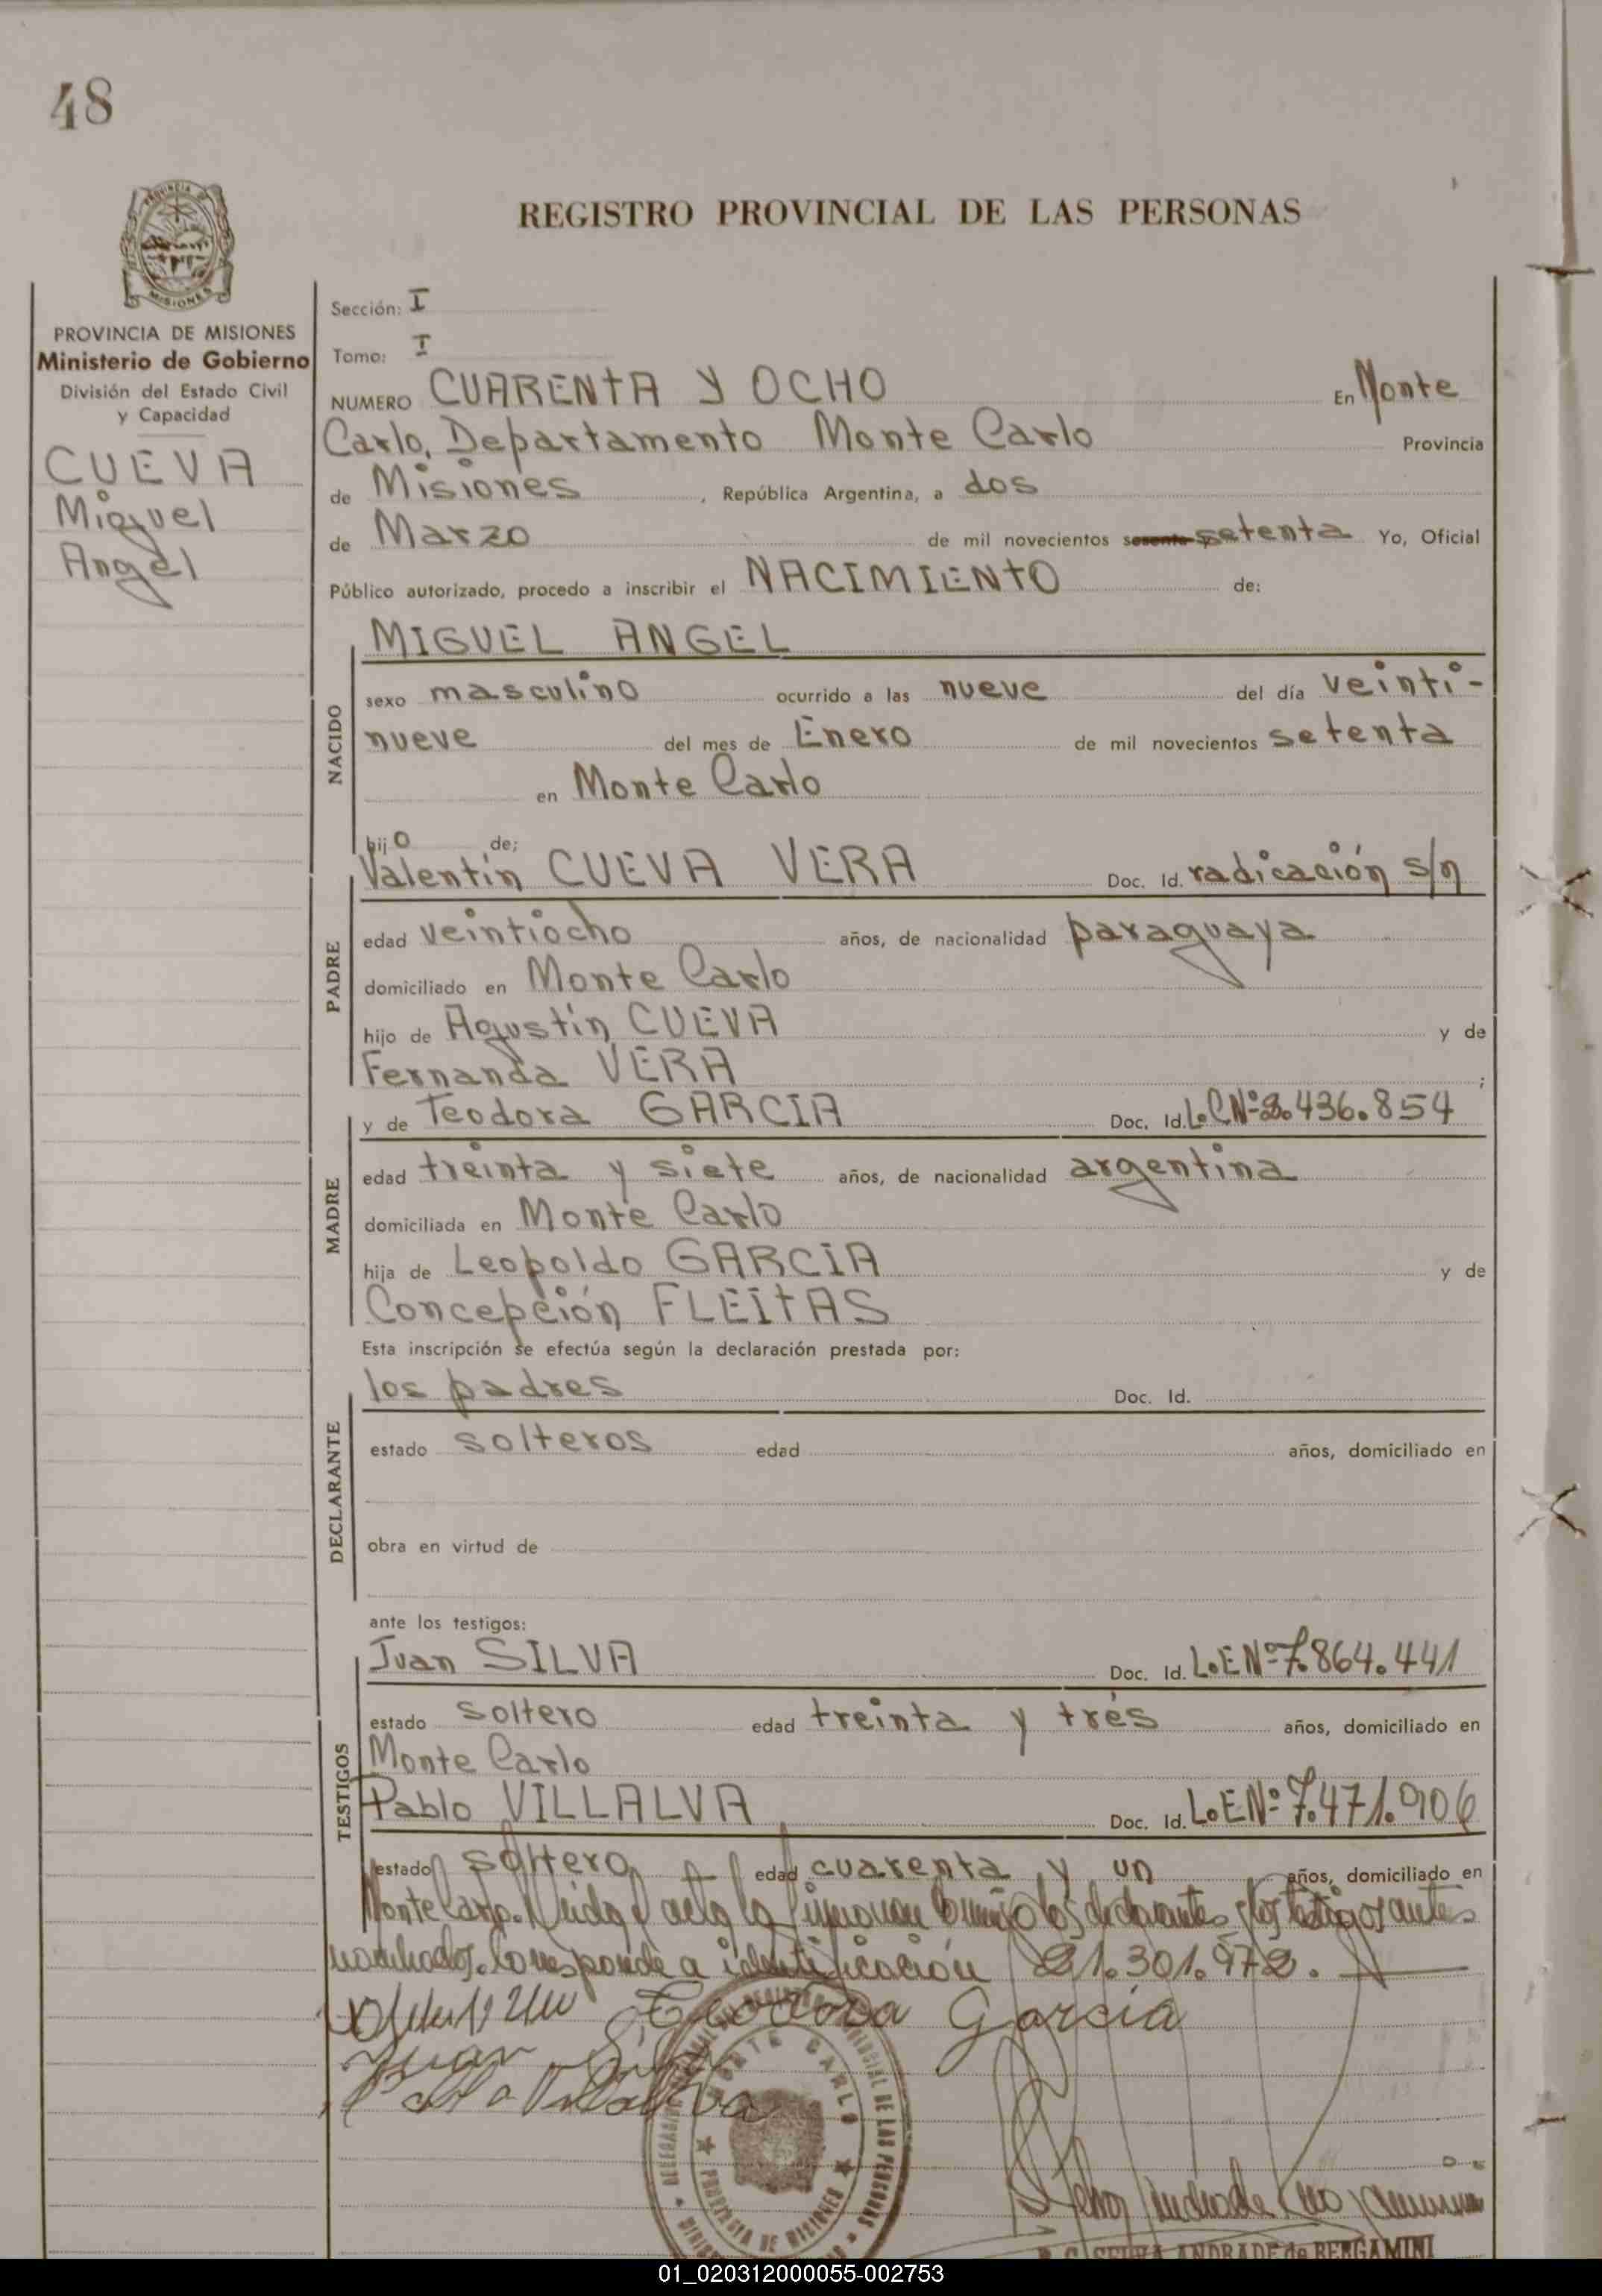 48
REGISTRO PROVINCIAL DE LAS PERSONAS
PROVINCIA DE MISIONES
Ministerio de Gobierno
División del Estado Civil
y Capacidad
CUEVA
Miguel
Angel
Sección: I
Tomo: I
NUMERO CUARENTA Y OCHO En Monte
Carlo, Departamento Monte Carlo Provincia
de Misiones, República Argentina, a dos
de Marzo de mil novecientos sesenta setenta Yo, Oficial
Público autorizado, procedo a inscribir el NACIMIENTO de:
NACIDO
MIGUEL ANGEL
sexo masculino ocurrido a las nueve del día veinti-
nueve del mes de Enero de mil novecientos setenta
en Monte Carlo
hijo de:
PADRE
Valentín CUEVA VERA Doc. Id. radicación s/n
edad veintiocho años, de nacionalidad paraguaya
domiciliado en Monte Carlo
hijo de Agustín CUEVA y de
Fernanda VERA ;
MADRE
y de Teodora GARCIA Doc. Id. L.C Nº 2.436.854
edad treinta y siete años, de nacionalidad argentina
domiciliada en Monte Carlo
hija de Leopoldo GARCIA y de
Concepción FLEITAS
Esta inscripción se efectúa según la declaración prestada por:
DECLARANTE
los padres Doc. Id.
estado solteros edad años, domiciliado en
obra en virtud de
ante los testigos:
TESTIGOS
Juan SILVA Doc. Id. L.E Nº 7.864.441
estado soltero edad treinta y trés años, domiciliado en
Monte Carlo
Pablo VILLALVA Doc. Id. L.E Nº 7.471.906
estado soltero edad cuarenta y un años, domiciliado en
Monte Carlo. Leída el acta la firman conmigo los declarantes y los testigos antes
nombrados. Corresponde a identificación 21.301.972.
Teodora Garcia
Juan Silva
Pablo Villalva
MONTE CARLO
PROVINCIA DE MISIONES
SELVA ANDRADE de BERGAMINI
01_020312000055-002753